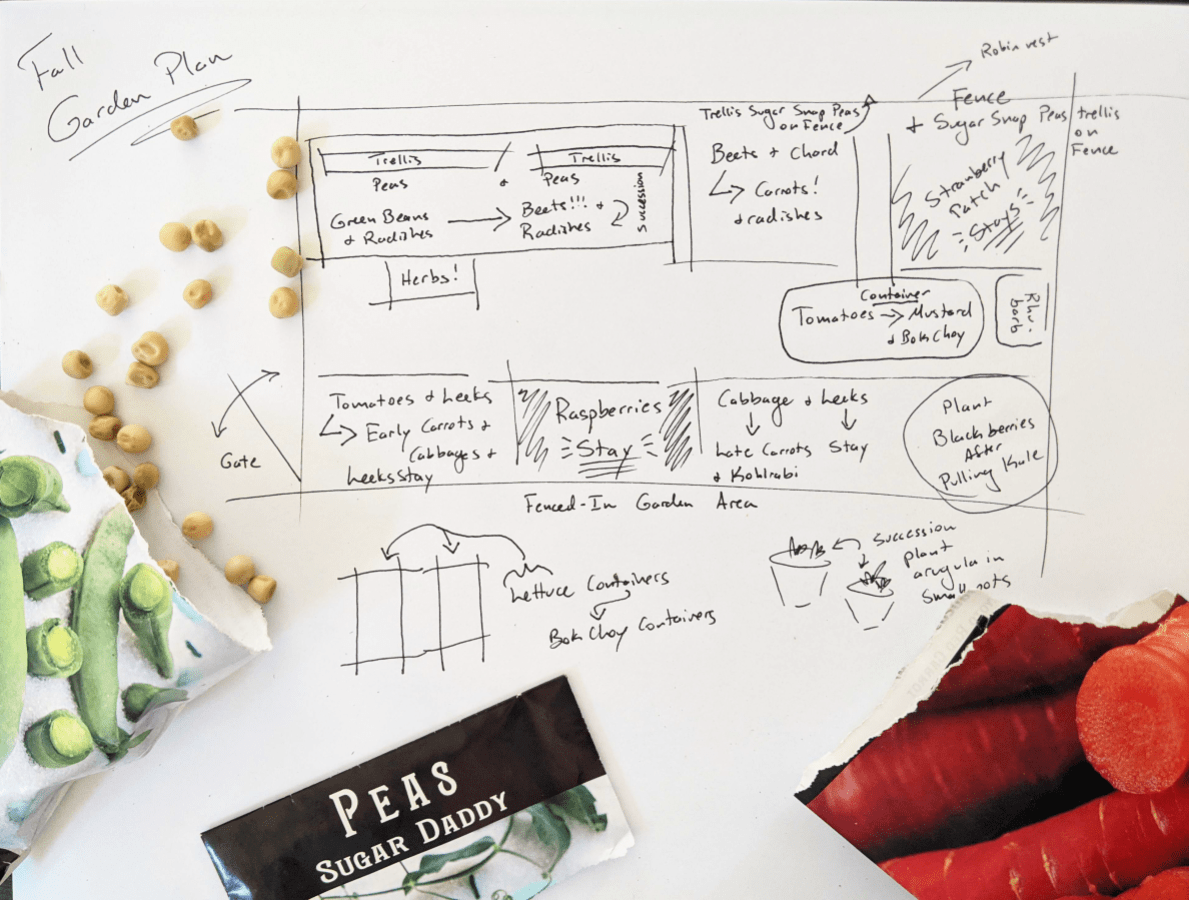 Fall
Garden Plan
Robin nest
Fence
+ Sugar Snap Peas
trellis
on
Fence
Trellis Sugar Snap Peas
on Fence
Trellis
Trellis
Peas
+
Peas
Green Beans
+ Radishes
Beets!!! +
Radishes
Succession
Herbs!
Beets + Chord
Carrots!
+ radishes
Strawberry
Patch
Stays
Container
Tomatoes → Mustard
+ Bok Choy
Rhu-
barb
Gate
Tomatoes + Leeks
Early Carrots +
Cabbages +
Leeks Stay
Raspberries
Stay
Cabbage + Leeks
Late Carrots Stay
+ Kohlrabi
Plant
Blackberries
After
Pulling Kale
Fenced-In Garden Area
Lettuce Containers
Bok Choy Containers
Succession
plant
arugula in
small pots
PEAS
SUGAR DADDY